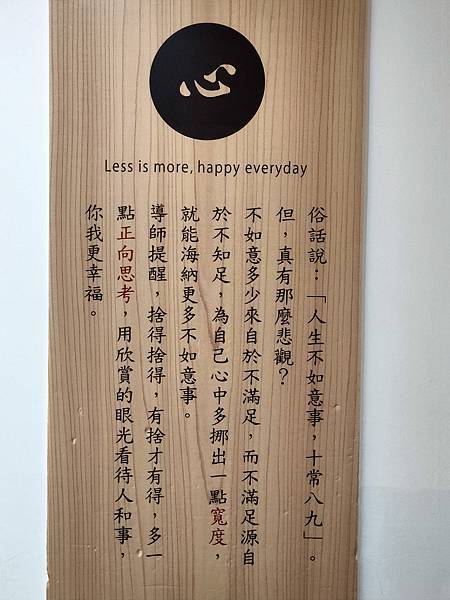 心
Less is more, happy everyday
俗話說：「人生不如意事，十常八九」。
但，真有那麼悲觀？
不如意多少來自於不滿足，而不滿足源自
於不知足，為自己心中多挪出一點寬度，
就能海納更多不如意事。
導師提醒，捨得捨得，有捨才有得，多一
點正向思考，用欣賞的眼光看待人和事，
你我更幸福。